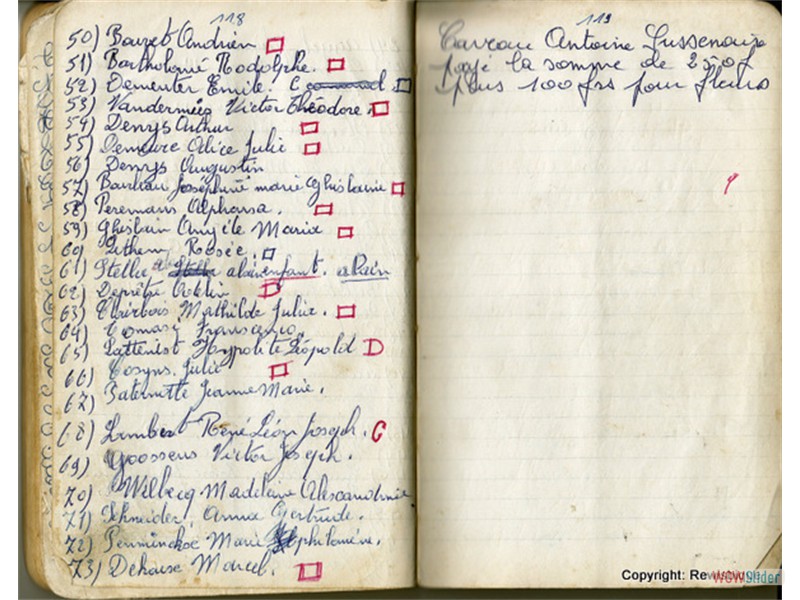 118
50) Bauret Andrien
51) Bartholomé Rodolphe.
52) Dementer Emile.
53) Vandermeies Victor Théodore.
54) Denys Arthur
55) Demeure Alice Julie
56) Denys Augustin
57) Bauduin Josephine marie Ghislaine
58) Peremans Alphonsa.
59) Ghislain Maria
60) Rosée.
61) Stellie alain enfant. alain
62) Deprêtre
63) Mathilde Julie.
64) Tomasi Francesco
65) Lattenist Hypolite Léopold
66) Cosyns. Julie
67) Paternotte Jeanne Marie.
68) Lambert René Léon Joseph. C
69) Goossens Victor Joseph.
70) Wilbecq Madelaine Alexandrine
71) Schneider, Anna Gertrude.
72) Penninckse Marie philomène.
73) Dehause Marcel.
119
Caveau Antoine
payé la somme de
plus 100 frs pour fleurs
Copyright: Re
wowslider